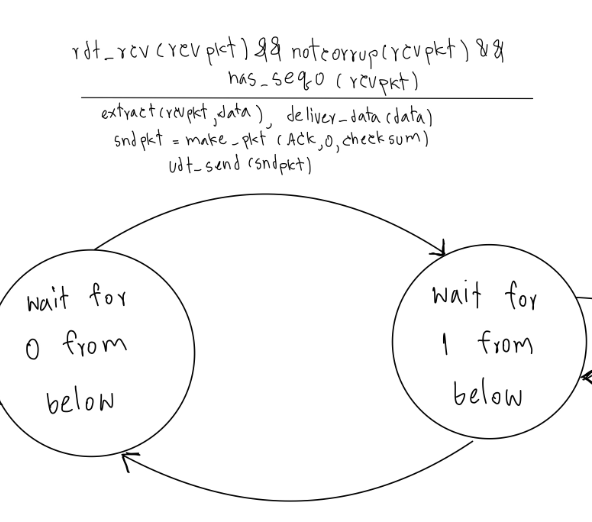 rdt_rcv (rcvpkt) && notcorrup(rcvpkt) &&
has_seq0 (rcvpkt)
extract(rcvpkt,data), deliver_data(data)
sndpkt = make_pkt (Ack,0,checksum)
udt_send (sndpkt)
wait for
0 from
below
wait for
1 from
below